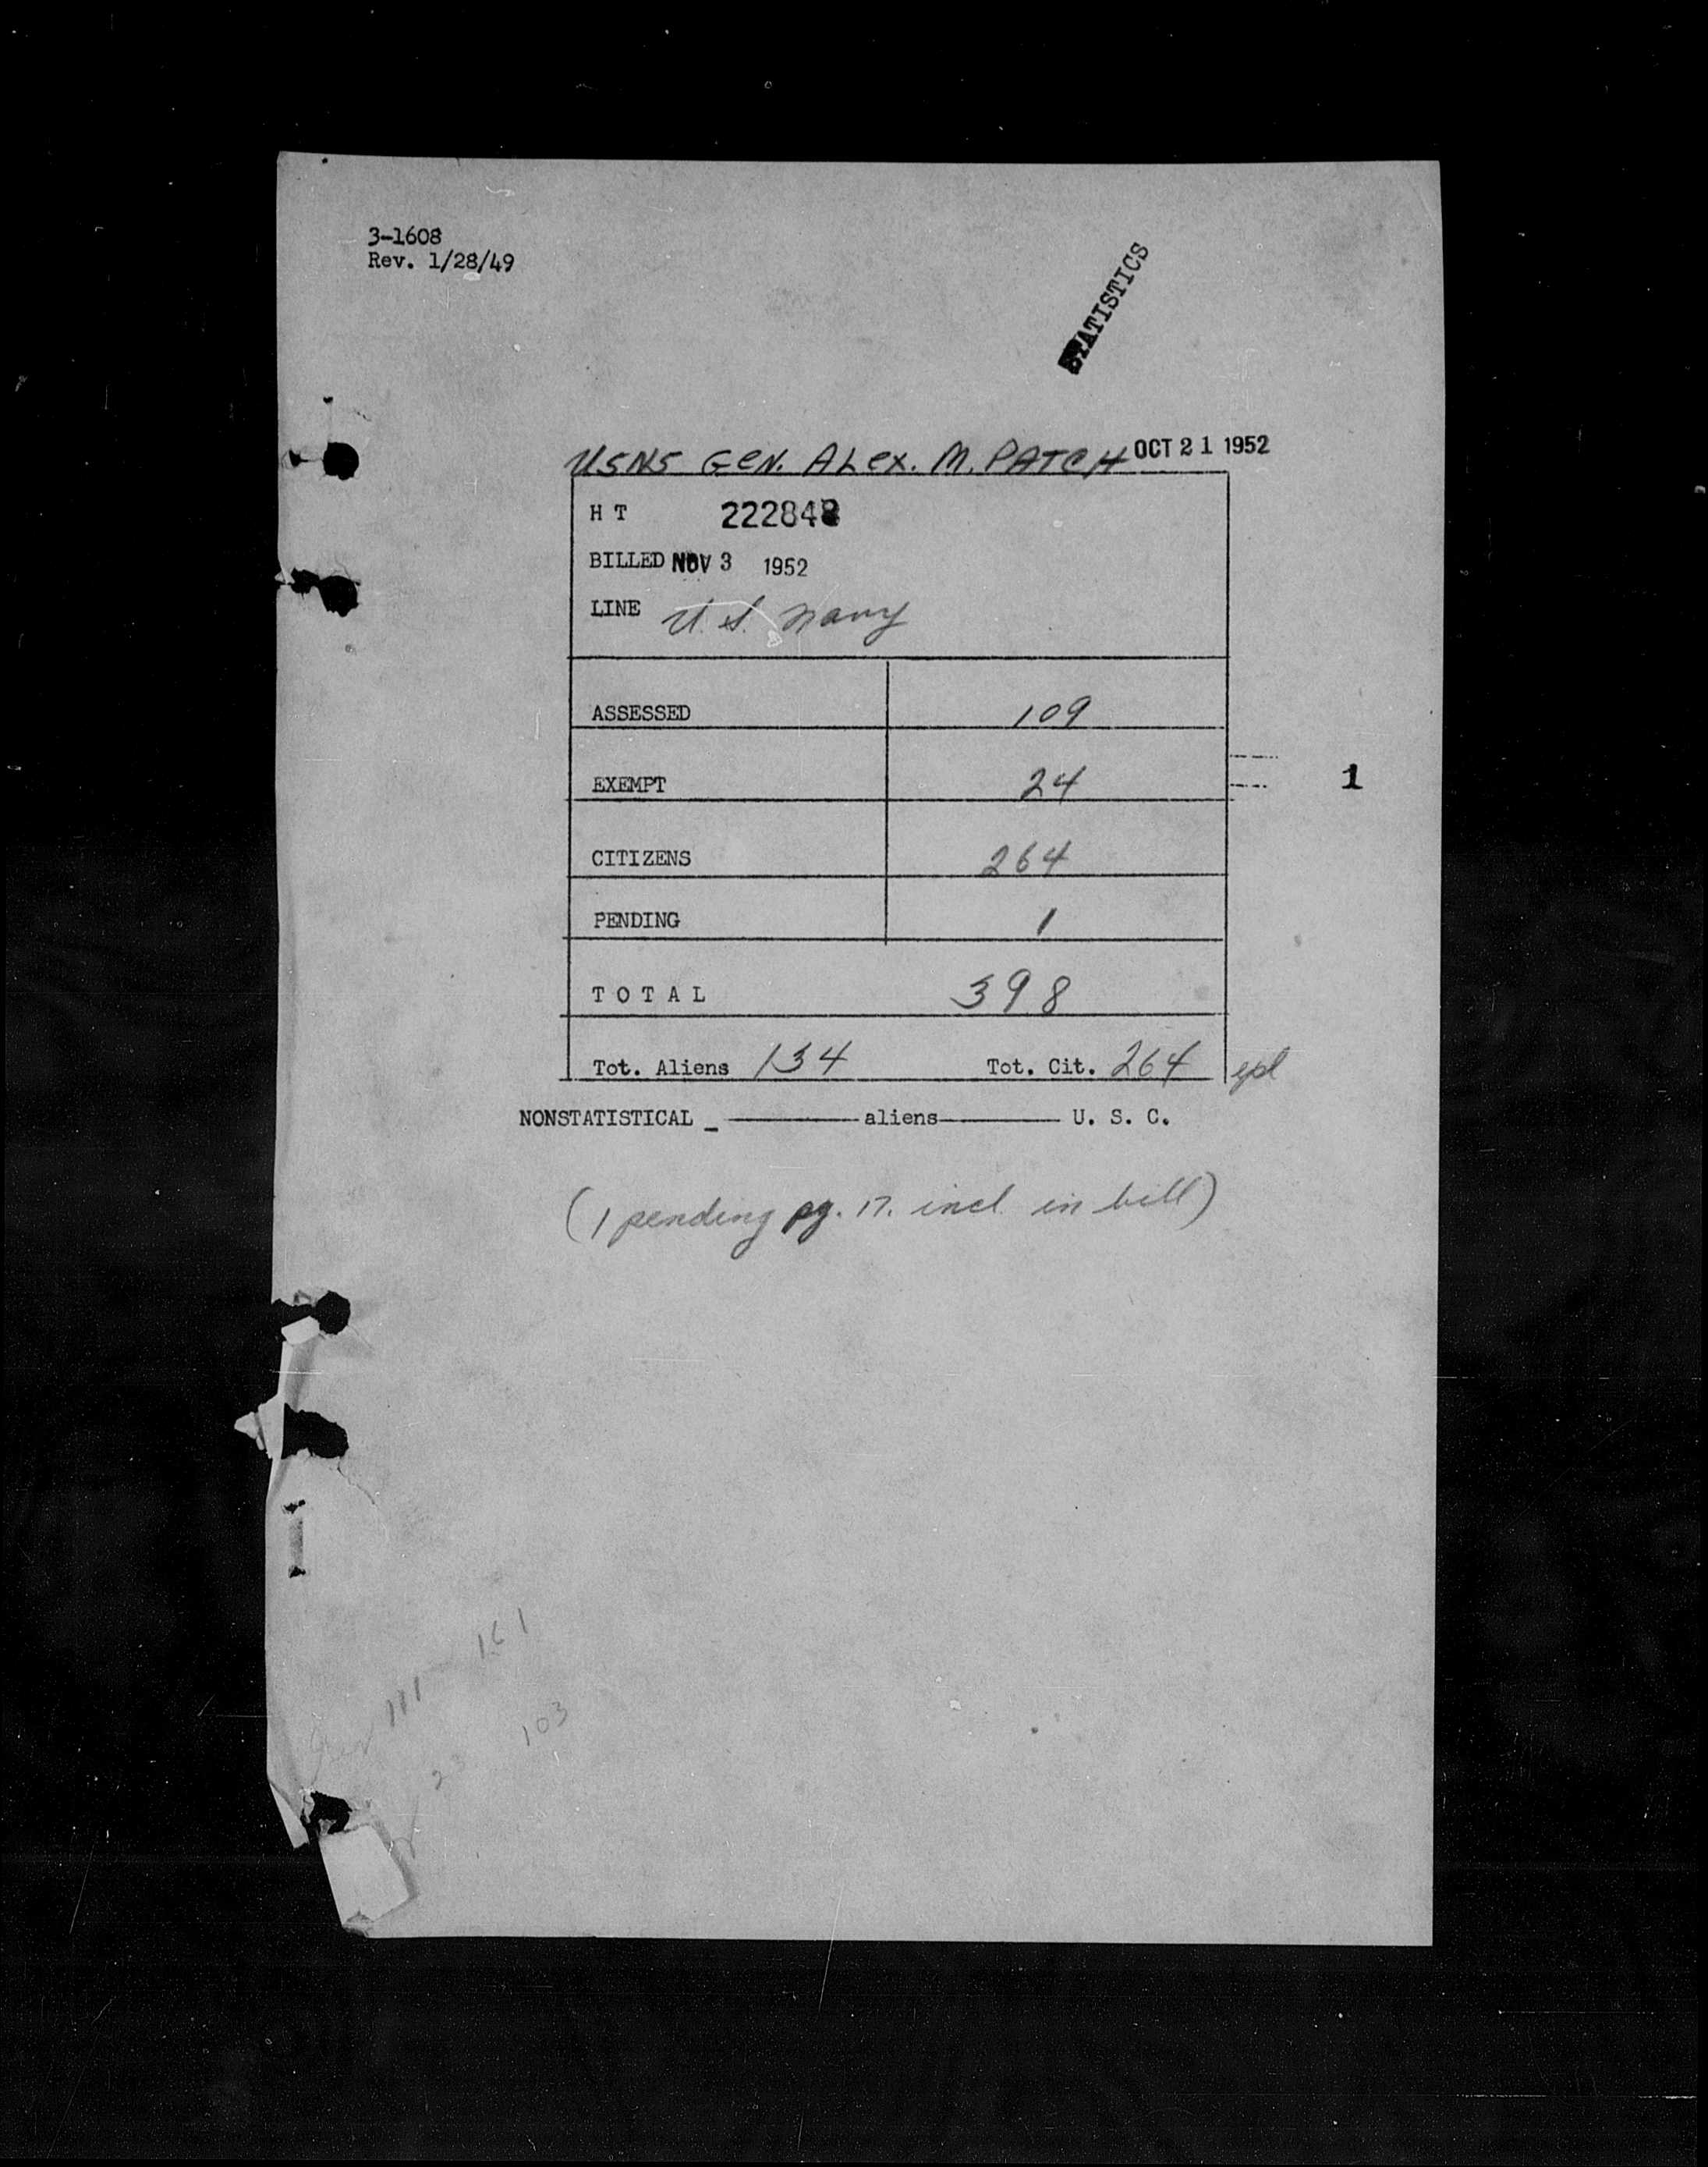 3-1608
Rev. 1/28/49
STATISTICS
USNS GEN. ALEX. M. PATCH OCT 21 1952
H T 222848
BILLED NOV 3 1952
LINE U. S. Navy
ASSESSED 109
EXEMPT 24
1
CITIZENS 264
PENDING 1
T O T A L 398
Tot. Aliens 134 Tot. Cit. 264 epl
NONSTATISTICAL _ aliens U. S. C.
(1 pending pg. 17. incl in bill)
111 161
23 103